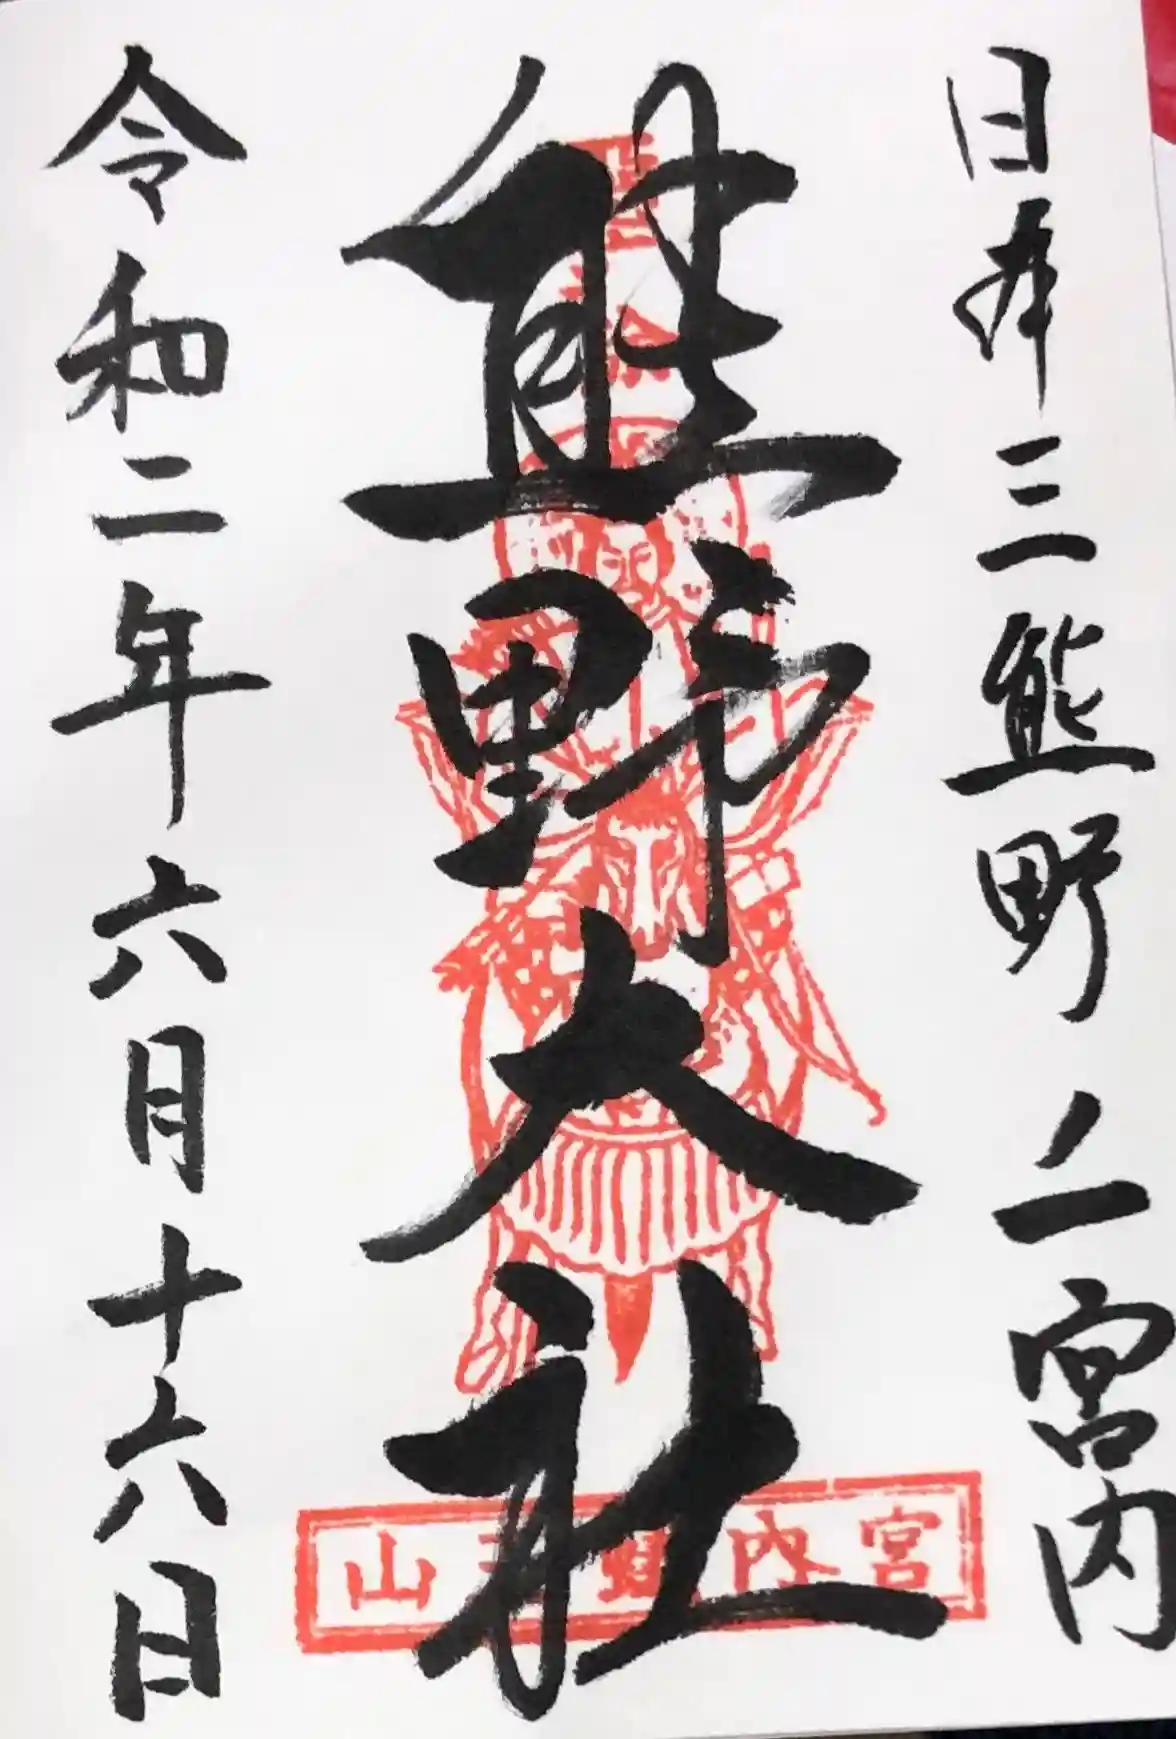 日本三熊野ノ一宮内
熊野大社
令和二年六月十六日
宮内
山